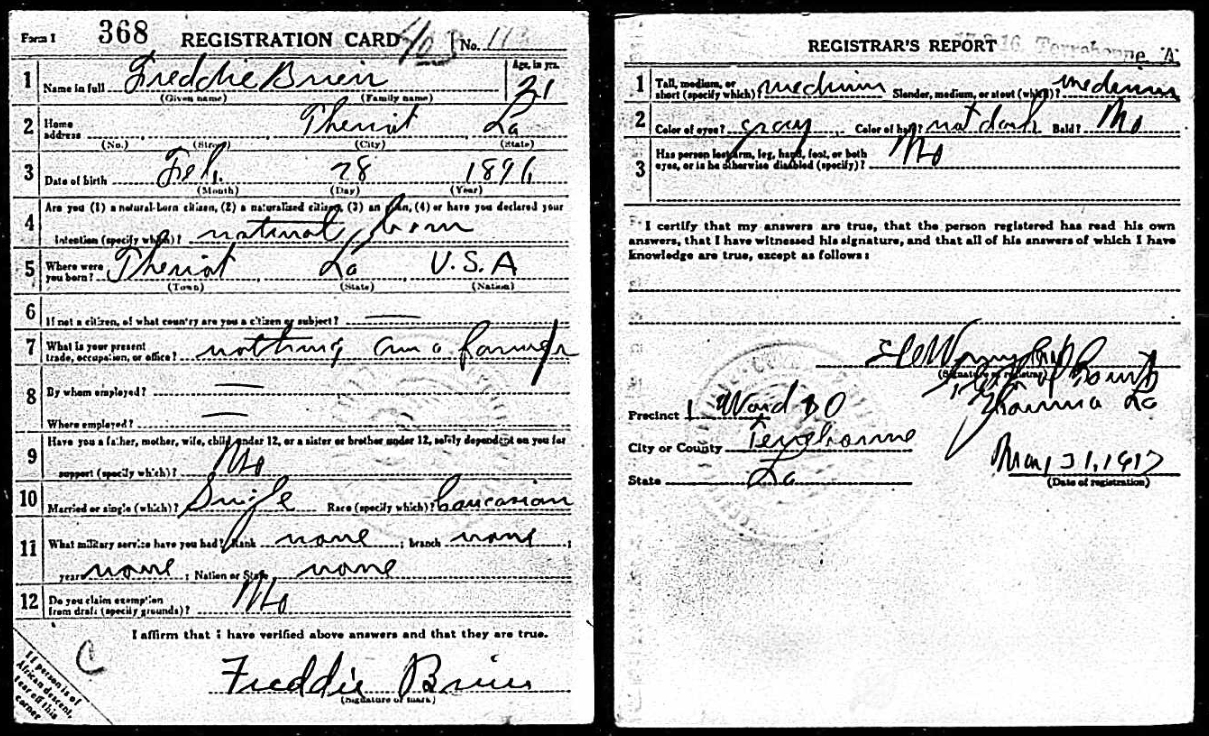 Form 1 368 REGISTRATION CARD No.
1 Name in full Freddie Brien Age, in yrs. 21
(Given name) (Family name)
2 Home address Theriot La
(No.) (Street) (City) (State)
3 Date of birth Feb. 28 1896
(Month) (Day) (Year)
4 Are you (1) a natural-born citizen, (2) a naturalized citizen, (3) an alien, (4) or have you declared your
intention (specify which)? natural born
5 Where were you born? Theriot La U.S.A
(Town) (State) (Nation)
6 If not a citizen, of what country are you a citizen or subject? —
7 What is your present trade, occupation, or office? nothing am a farmer
8 By whom employed? —
Where employed? —
9 Have you a father, mother, wife, child under 12, or a sister or brother under 12, solely dependent on you for
support (specify which)? No
10 Married or single (which)? Single Race (specify which)? Caucasian
11 What military service have you had? Rank none ; branch none ;
years none ; Nation or State none
12 Do you claim exemption from draft (specify grounds)? No
I affirm that I have verified above answers and that they are true.
C
Freddie Brien
(Signature or mark)
If person is of
African descent,
tear off this
corner
17-2-16. Terrebonne, A
REGISTRAR'S REPORT
1 Tall, medium, or short (specify which)? medium Slender, medium, or stout (which)? medium
2 Color of eyes? gray Color of hair? not dark Bald? No
3 Has person lost arm, leg, hand, foot, or both eyes, or is he otherwise disabled (specify)? No
I certify that my answers are true, that the person registered has read his own
answers, that I have witnessed his signature, and that all of his answers of which I have
knowledge are true, except as follows:
(Signature of registrar)
Houma La
Precinct Ward 10
City or County Terrebonne
State La
May 31, 1917
(Date of registration)